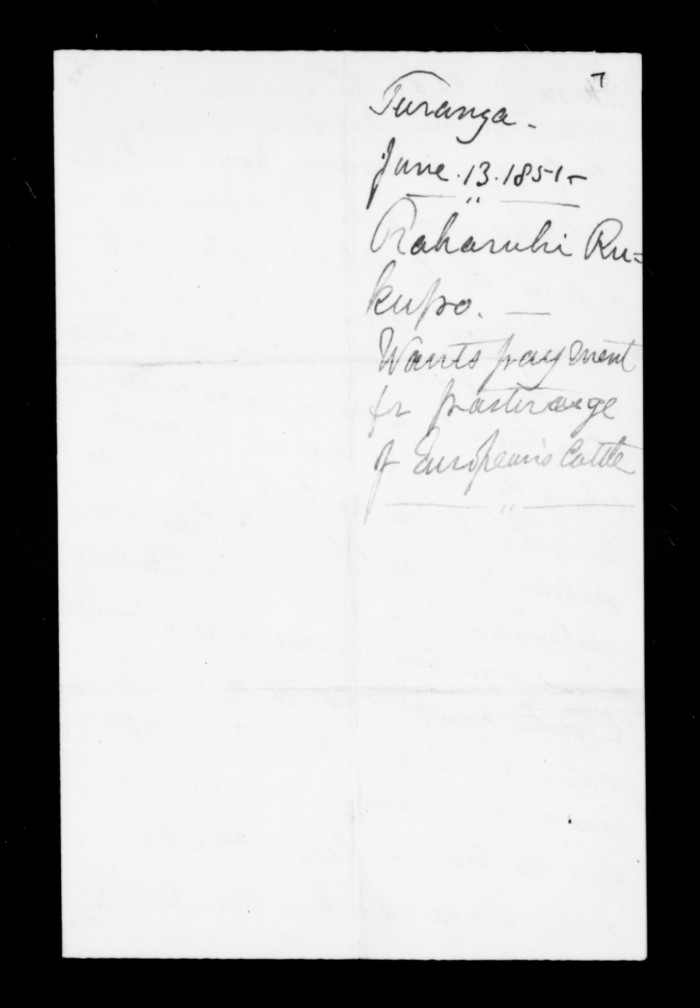 7
Turanga -
June . 13 . 1851 -
"
Raharuhi Ru=
kupo. —
Wants payment
fr pasturage
of European's Cattle
"